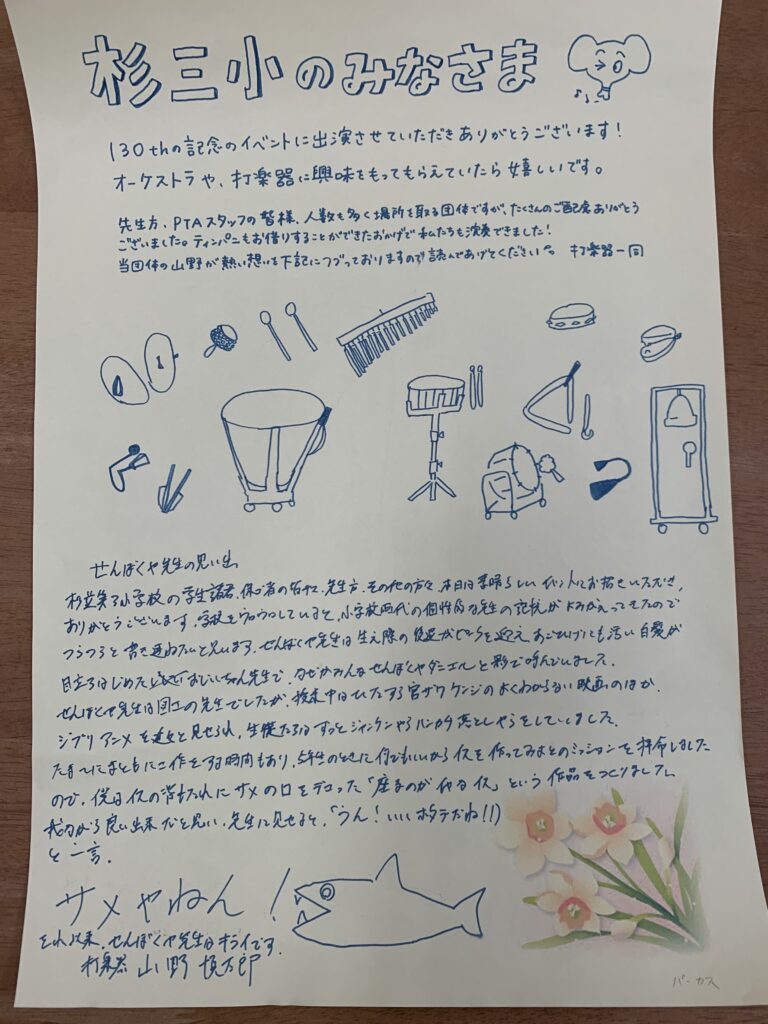 杉三小のみなさま
130thの記念のイベントに出演させていただきありがとうございます!
オーケストラや、打楽器に興味をもってもらえていたら嬉しいです。
先生方、PTAスタッフの皆様、人数も多く場所を取る団体ですが、たくさんのご配慮ありがとう
ございました。ティンパニもお借りすることができたおかげで私たちも演奏できました!
当団体の山野が熱い想いを下記につづっておりますので読んであげてください。 打楽器一同
せんぼくや先生の思い出
杉並第三小学校の学生諸君、保ゴ者の皆サマ、先生方、その他の方々、本日は素晴らしいイベントにお招きいただき、
ありがとうございます。学校をウロウロしていると、小学校時代の個性的な先生の記憶がよみがえってきたので
つらつらと書き連ねたいと思います。せんぼくや先生は生え際の後退がピークを迎え、あごひげにも濃い白髪が
目立ちはじめたおじいちゃん先生で、なぜかみんなせんぼくやダニエルと影で呼んでいました。
せんぼくや先生は図工の先生でしたが、授業中はひたすら宮ザワケンジのよくわからない映画のほか、
ジブリアニメを延々と見せられ、生徒たちはずっとジャンケンやらハンカチ落としやらをしていました。
たまーにまともに工作をする時間もあり、5年生のときに何でもいいからイスを作ってみよとのミッションを拝命しました
ので、僕はイスの背もたれにサメの口をデコった「座るのが怖いイス」という作品をつくりました。
我ながら良い出来だと思い、先生に見せると、「うん!いいホタテだね!!」
と一言。
サメやねん!
それ以来、せんぼくや先生はキライです。
打楽器 山野 慎太郎
パーカス